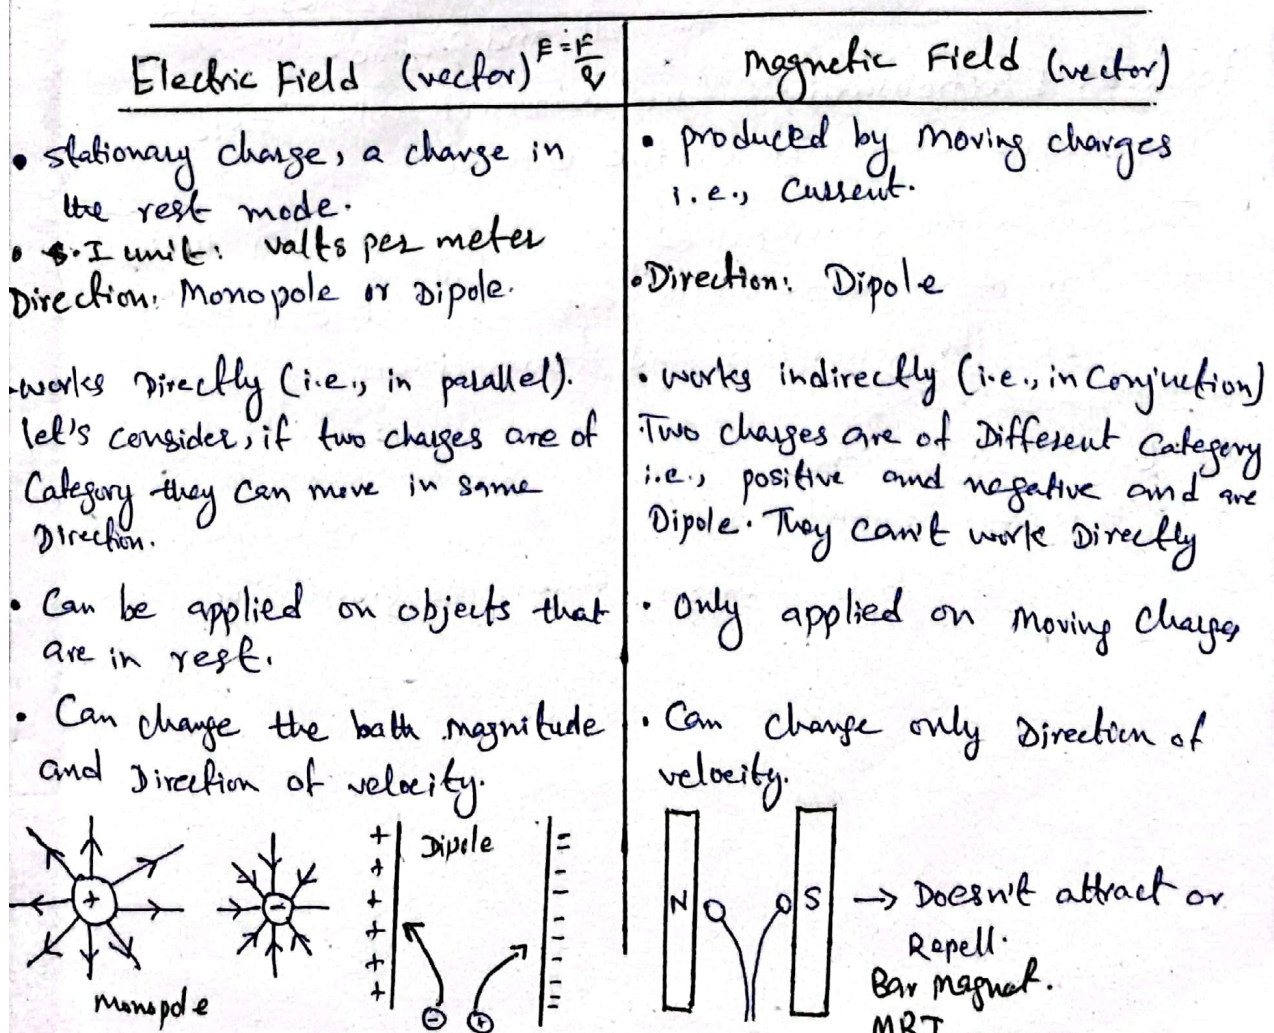 Electric Field (vector) E = F/q
• stationary charge, a charge in
the rest mode.
• S.I unit: valts per meter
Direction: Monopole or Dipole.
works Directly (i.e., in parallel).
let's consider, if two charges are of
Category they can move in same
Direction.
• Can be applied on objects that
are in rest.
• Can change the bath magnitude
and Direction of velocity.
+
-
Monopole
+ Dipole =
+ -
+ -
+ -
+ -
+ =
- +
Magnetic Field (vector)
• produced by moving charges
i.e., Current.
• Direction: Dipole
• works indirectly (i.e., in Conjuction)
Two charges are of Different Category
i.e., positive and negative and are
Dipole. They can't work Directly
• Only applied on Moving Charges
• Can change only Direction of
velocity.
N S → Doesn't attract or
Repell.
Bar Magnet.
MRI